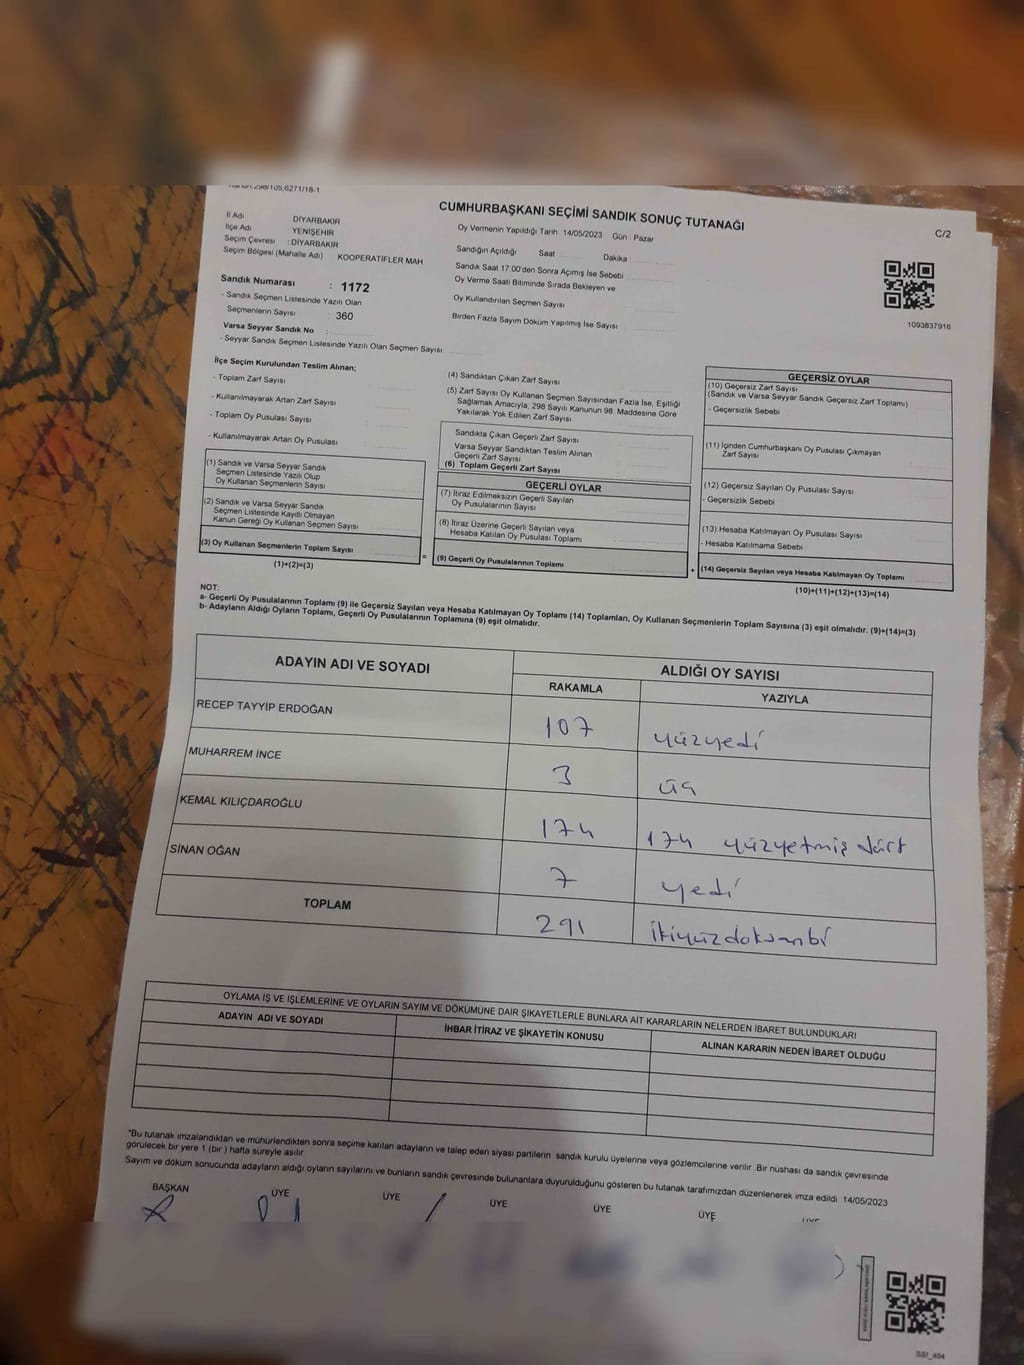 Kanun,298/105,6271/18-1
CUMHURBAŞKANI SEÇİMİ SANDIK SONUÇ TUTANAĞI
C/2
İl Adı : DİYARBAKIR
İlçe Adı YENİŞEHİR
Seçim Çevresi : DİYARBAKIR
Seçim Bölgesi (Mahalle Adı) KOOPERATİFLER MAH
Oy Vermenin Yapıldığı Tarih :14/05/2023 Gün : Pazar
Sandığın Açıldığı Saat Dakika
Sandık Saat 17.00'den Sonra Açımış İse Sebebi
Oy Verme Saati Bitiminde Sırada Bekleyen ve
Oy Kullandırılan Seçmen Sayısı
Birden Fazla Sayım Döküm Yapılmış İse Sayısı
1093837916
Sandık Numarası : 1172
- Sandık Seçmen Listesinde Yazılı Olan
Seçmenlerin Sayısı : 360
Varsa Seyyar Sandık No :
- Seyyar Sandık Seçmen Listesinde Yazılı Olan Seçmen Sayısı
İlçe Seçim Kurulundan Teslim Alınan;
- Toplam Zarf Sayısı
- Kullanılmayarak Artan Zarf Sayısı
- Toplam Oy Pusulası Sayısı
- Kullanılmayarak Artan Oy Pusulası
(1) Sandık ve Varsa Seyyar Sandık
Seçmen Listesinde Yazılı Olup
Oy Kullanan Seçmenlerin Sayısı
(2) Sandık ve Varsa Seyyar Sandık
Seçmen Listesinde Kayıtlı Olmayan
Kanun Gereği Oy Kullanan Seçmen Sayısı
(3) Oy Kullanan Seçmenlerin Toplam Sayısı
(1)+(2)=(3)
(4) Sandıktan Çıkan Zarf Sayısı
(5) Zarf Sayısı Oy Kullanan Seçmen Sayısından Fazla İse, Eşitliği
Sağlamak Amacıyla, 298 Sayılı Kanunun 98. Maddesine Göre
Yakılarak Yok Edilen Zarf Sayısı
Sandıkta Çıkan Geçerli Zarf Sayısı
Varsa Seyyar Sandıktan Teslim Alınan
Geçerli Zarf Sayısı
(6) Toplam Geçerli Zarf Sayısı
GEÇERLİ OYLAR
(7) İtiraz Edilmeksizin Geçerli Sayılan
Oy Pusulalarının Sayısı
(8) İtiraz Üzerine Geçerli Sayılan veya
Hesaba Katılan Oy Pusulası Toplamı
= (9) Geçerli Oy Pusulalarının Toplamı +
GEÇERSİZ OYLAR
(10) Geçersiz Zarf Sayısı
(Sandık ve Varsa Seyyar Sandık Geçersiz Zarf Toplamı)
- Geçersizlik Sebebi
(11) İçinden Cumhurbaşkanı Oy Pusulası Çıkmayan
Zarf Sayısı
(12) Geçersiz Sayılan Oy Pusulası Sayısı
- Geçersizlik Sebebi
(13) Hesaba Katılmayan Oy Pusulası Sayısı
- Hesaba Katılmama Sebebi
(14) Geçersiz Sayılan veya Hesaba Katılmayan Oy Toplamı
(10)+(11)+(12)+(13)=(14)
NOT:
a- Geçerli Oy Pusulalarının Toplamı (9) ile Geçersiz Sayılan veya Hesaba Katılmayan Oy Toplamı (14) Toplamları, Oy Kullanan Seçmenlerin Toplam Sayısına (3) eşit olmalıdır. (9)+(14)=(3)
b- Adayların Aldığı Oyların Toplamı, Geçerli Oy Pusulalarının Toplamına (9) eşit olmalıdır.
ADAYIN ADI VE SOYADI ALDIĞI OY SAYISI
RAKAMLA YAZIYLA
RECEP TAYYİP ERDOĞAN 107 yüzyedi
MUHARREM İNCE 3 üç
KEMAL KILIÇDAROĞLU 174 174 yüzyetmiş dört
SİNAN OĞAN 7 yedi
TOPLAM 291 ikiyüzdoksanbi
OYLAMA İŞ VE İŞLEMLERİNE VE OYLARIN SAYIM VE DÖKÜMÜNE DAİR ŞİKAYETLERLE BUNLARA AİT KARARLARIN NELERDEN İBARET BULUNDUKLARI
ADAYIN ADI VE SOYADI İHBAR İTİRAZ VE ŞİKAYETİN KONUSU ALINAN KARARIN NEDEN İBARET OLDUĞU
*Bu tutanak imzalandıktan ve mühürlendikten sonra seçime katılan adayların ve talep eden siyasi partilerin sandık kurulu üyelerine veya gözlemcilerine verilir. Bir nüshası da sandık çevresinde
görülecek bir yere 1 (bir ) hafta süreyle asılır.
Sayım ve döküm sonucunda adayların aldığı oyların sayılarını ve bunların sandık çevresinde bulunanlara duyurulduğunu gösteren bu tutanak tarafımızdan düzenlenerek imza edildi. 14/05/2023
BAŞKAN ÜYE ÜYE ÜYE ÜYE ÜYE